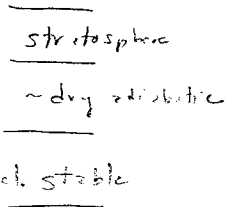 stratosphere
~ dry adiabatic
cl. stable